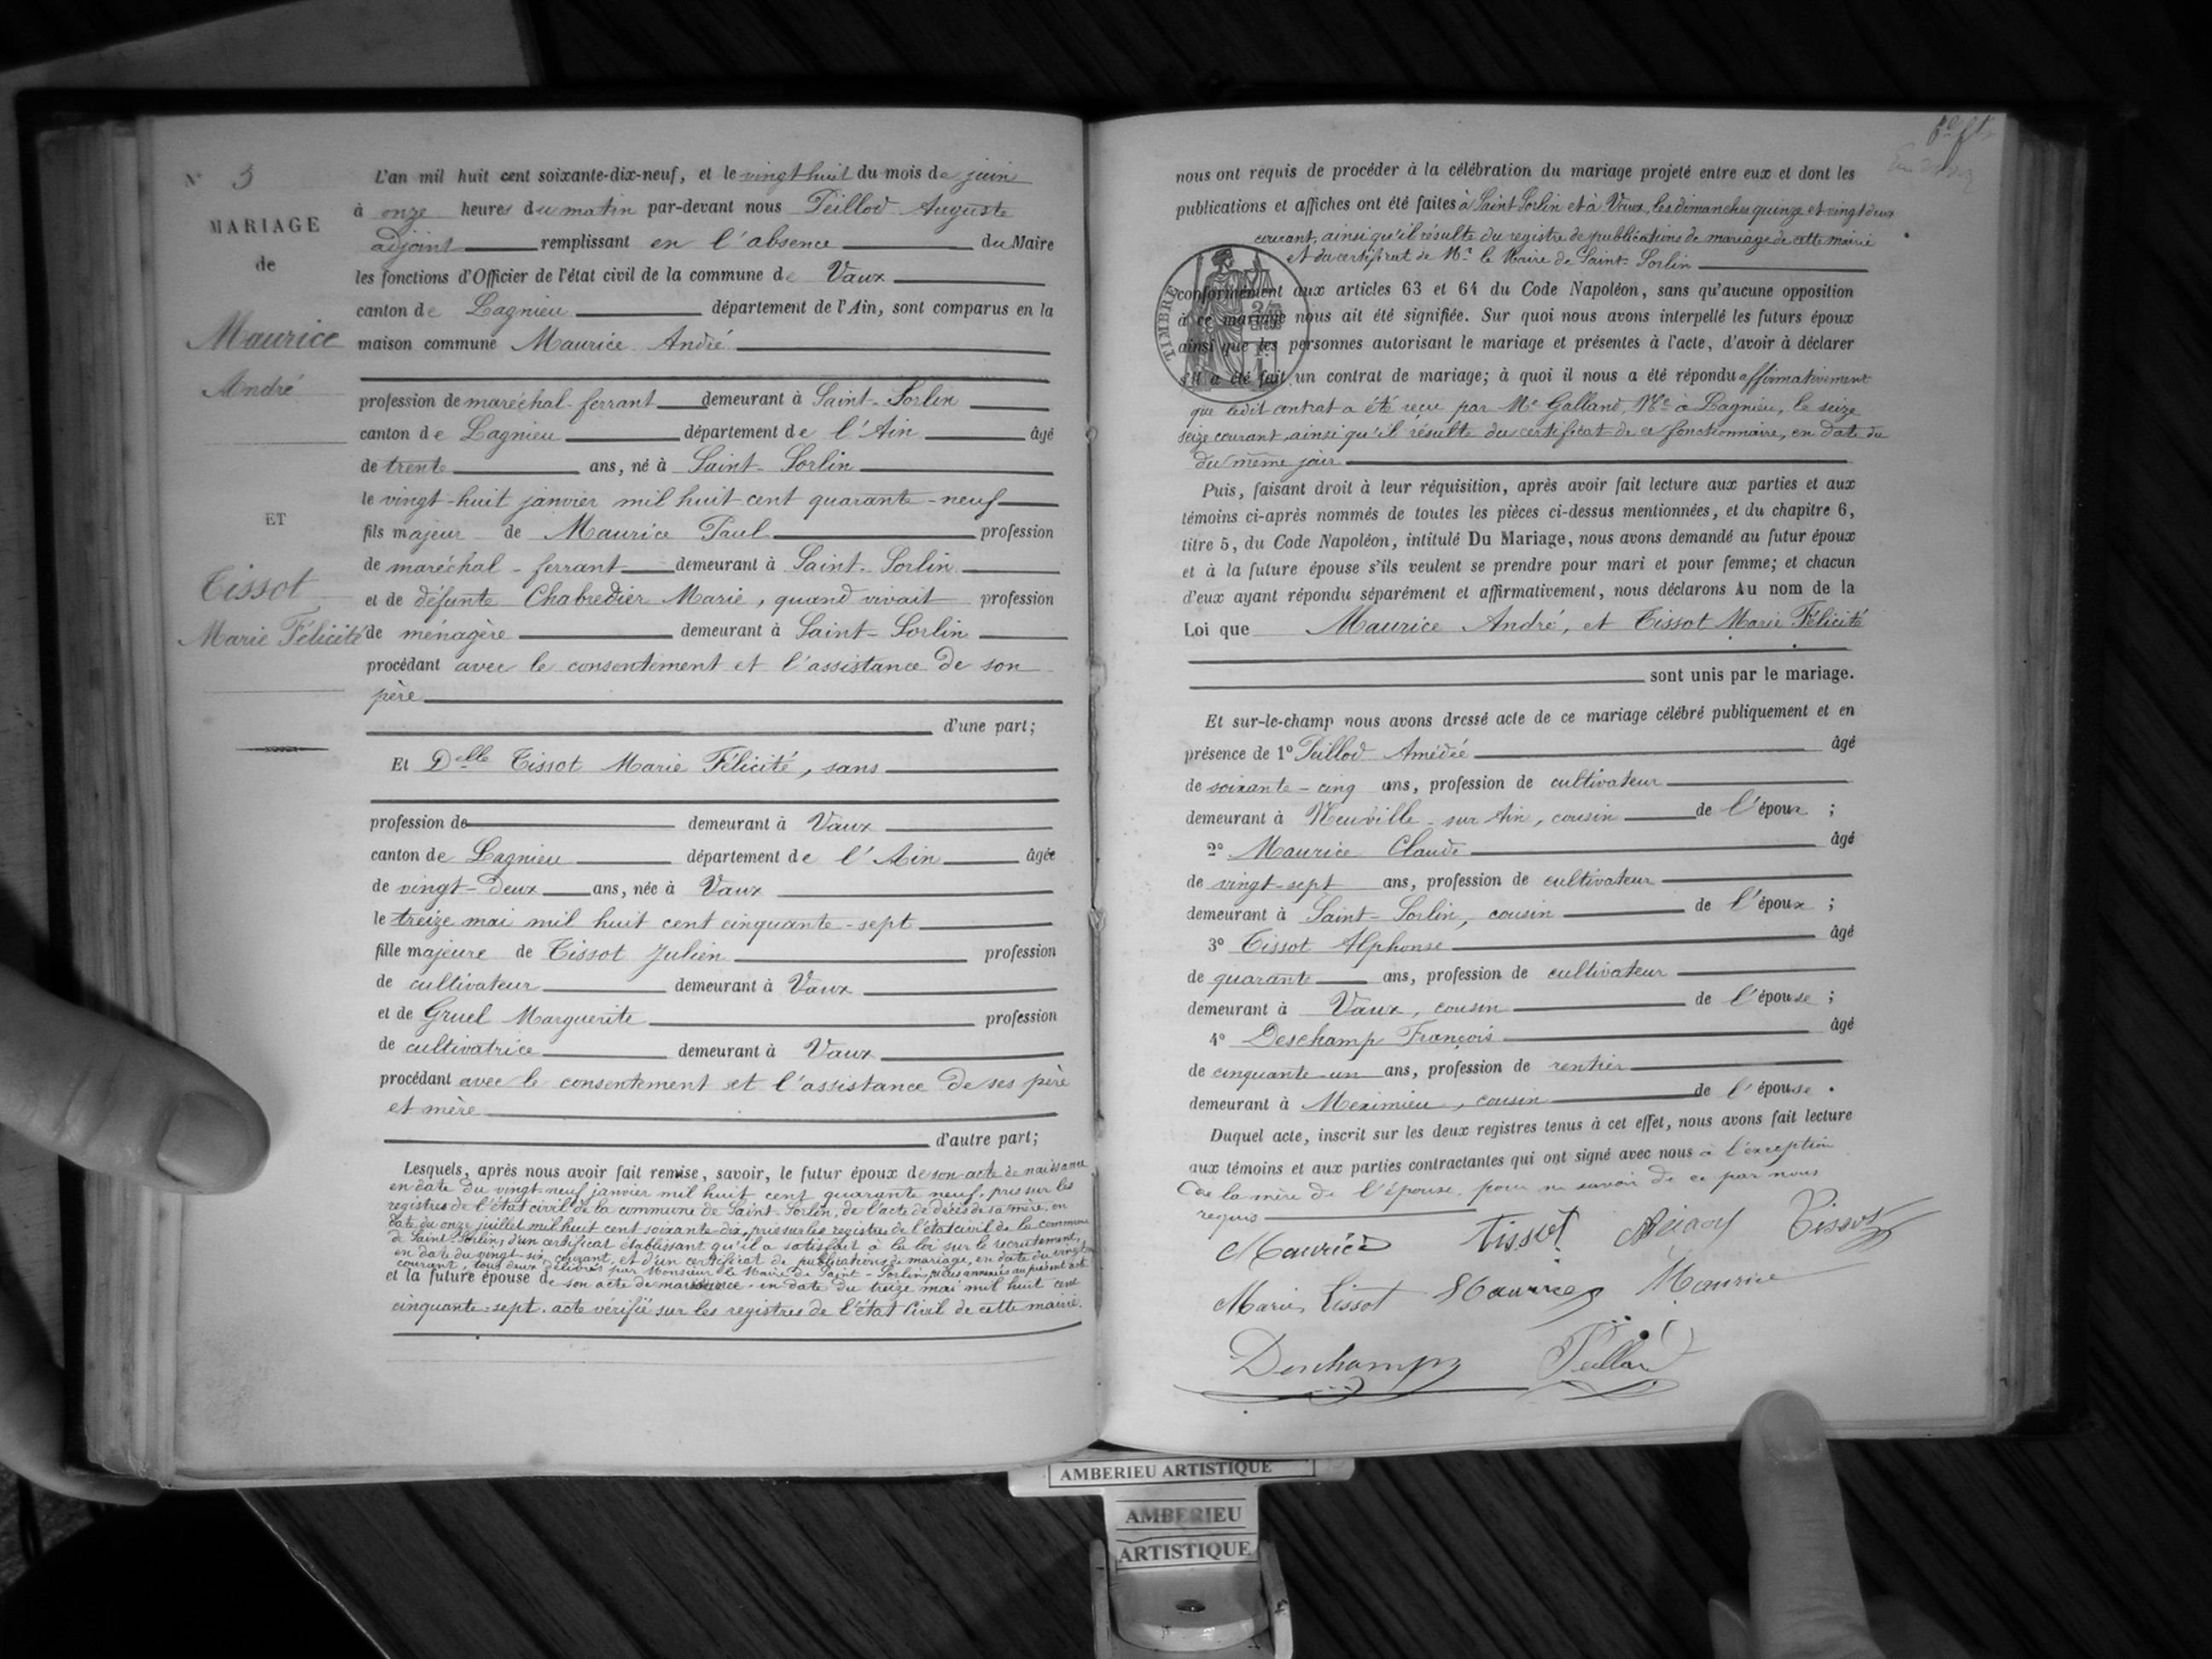 N° 3
MARIAGE
de
Maurice
André
ET
Tissot
Marie Félicité
L'an mil huit cent soixante-dix-neuf, et le vingt huit du mois de juin
à onze heures du matin par-devant nous Peillod Auguste
adjoint remplissant en l'absence du Maire
les fonctions d'Officier de l'état civil de la commune de Vaux
canton de Lagnieu département de l'Ain, sont comparus en la
maison commune Maurice André
profession de maréchal-ferrant demeurant à Saint-Sorlin
canton de Lagnieu département de l'Ain âgé
de trente ans, né à Saint-Sorlin
le vingt-huit janvier mil huit cent quarante-neuf
fils majeur de Maurice Paul profession
de maréchal-ferrant demeurant à Saint-Sorlin
et de défunte Chabredier Marie, quand vivait profession
de ménagère demeurant à Saint-Sorlin
procédant avec le consentement et l'assistance de son
père
d'une part;
Et Delle Tissot Marie Félicité, sans
profession de demeurant à Vaux
canton de Lagnieu département de l'Ain âgée
de vingt-deux ans, née à Vaux
le treize mai mil huit cent cinquante-sept
fille majeure de Tissot Julien profession
de cultivateur demeurant à Vaux
et de Gruel Marguerite profession
de cultivatrice demeurant à Vaux
procédant avec le consentement et l'assistance de ses père
et mère
d'autre part;
Lesquels, après nous avoir fait remise, savoir, le futur époux de son acte de naissance
en date du vingt-neuf janvier mil huit cent quarante neuf, pris sur les
registres de l'état civil de la commune de Saint-Sorlin, de l'acte de décès de sa mère, en
date du onze juillet mil huit cent soixante-dix, pris sur les registres de l'état civil de la commune
de Saint-Sorlin, d'un certificat établissant qu'il a satisfait à la loi sur le recrutement,
en date du vingt-six courant, et d'un certificat de publications de mariage, en date du vingt
courant, tous deux délivrés par Monsieur le Maire de Saint-Sorlin, pièces annexées au présent acte
et la future épouse de son acte de naissance en date du treize mai mil huit cent
cinquante-sept, acte vérifié sur les registres de l'état Civil de cette mairie.
nous ont requis de procéder à la célébration du mariage projeté entre eux et dont les
publications et affiches ont été faites à Saint Sorlin et à Vaux, les dimanches quinze et vingt deux
courant, ainsi qu'il résulte du registre de publications de mariage de cette mairie
et du certificat de Mr le Maire de Saint-Sorlin
conformément aux articles 63 et 64 du Code Napoléon, sans qu'aucune opposition
à ce mariage nous ait été signifiée. Sur quoi nous avons interpellé les futurs époux
ainsi que les personnes autorisant le mariage et présentes à l'acte, d'avoir à déclarer
s'il a été fait un contrat de mariage; à quoi il nous a été répondu affirmativement
que ledit contrat a été reçu par Me Galland, Nre à Lagnieu, le seize
seize courant, ainsi qu'il résulte du certificat de ce fonctionnaire, en date du
du même jour
TIMBRE
Puis, faisant droit à leur réquisition, après avoir fait lecture aux parties et aux
témoins ci-après nommés de toutes les pièces ci-dessus mentionnées, et du chapitre 6,
titre 5, du Code Napoléon, intitulé Du Mariage, nous avons demandé au futur époux
et à la future épouse s'ils veulent se prendre pour mari et pour femme; et chacun
d'eux ayant répondu séparément et affirmativement, nous déclarons Au nom de la
Loi que Maurice André, et Tissot Marie Félicité
sont unis par le mariage.
Et sur-le-champ nous avons dressé acte de ce mariage célébré publiquement et en
présence de 1° Peillod Amédée âgé
de soixante-cinq ans, profession de cultivateur
demeurant à Neuville-sur Ain, cousin de l'époux ;
2° Maurice Claude âgé
de vingt-sept ans, profession de cultivateur
demeurant à Saint-Sorlin, cousin de l'époux ;
3° Tissot Alphonse âgé
de quarante ans, profession de cultivateur
demeurant à Vaux, cousin de l'épouse ;
4° Deschamp François âgé
de cinquante-un ans, profession de rentier
demeurant à Meximieu, cousin de l'épouse.
Duquel acte, inscrit sur les deux registres tenus à cet effet, nous avons fait lecture
aux témoins et aux parties contractantes qui ont signé avec nous à l'exception
de la mère de l'épouse, pour ne savoir de ce par nous
requis
Maurice Tissot Tissot
Marie Tissot Maurice Maurice
Deschamps Peillod
AMBERIEU ARTISTIQUE
AMBERIEU
ARTISTIQUE